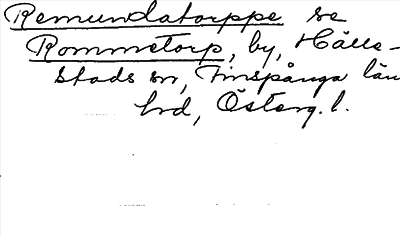 Remundatorppe se
Rommetorp, by, Hälle-
stads sn, Finspånga län
hrd, Österg. l.